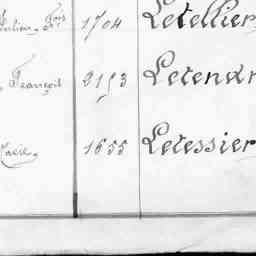 1704 Letellier
François 2193 Letend
1655 Letessier